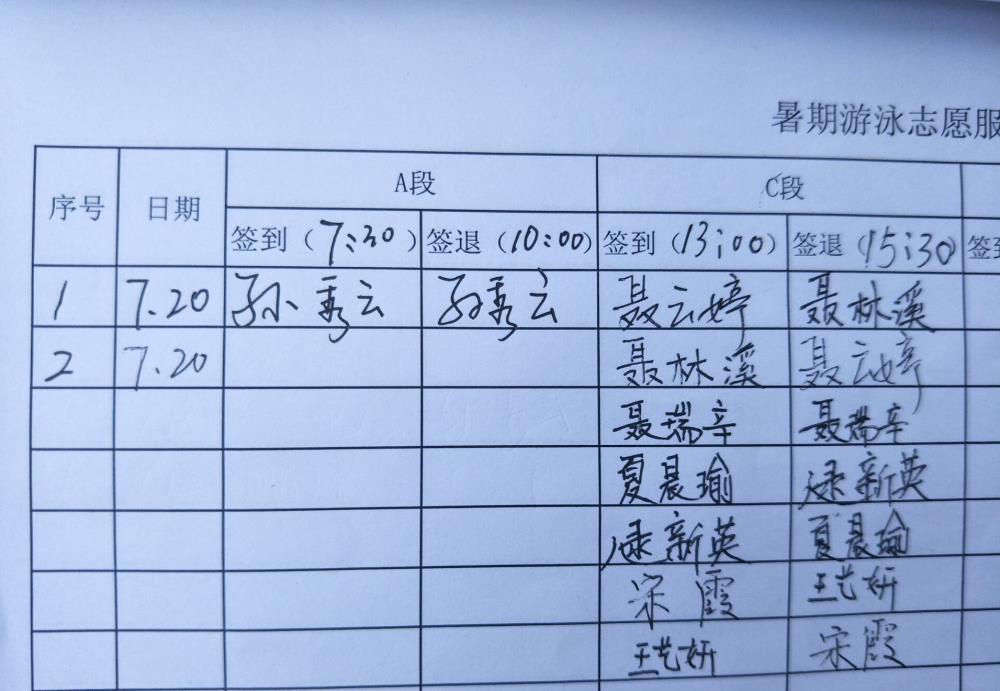 暑期游泳志愿服
序号 日期 A段 C段
签到（7:30） 签退（10:00） 签到（13:00） 签退（15:30） 签到
1 7.20 孙秀云 孙秀云 聂云婷 聂林溪
2 7.20 聂林溪 聂云婷
聂瑞辛 聂瑞辛
夏晨瑜 逯新英
逯新英 夏晨瑜
宋霞 王艺妍
王艺妍 宋霞